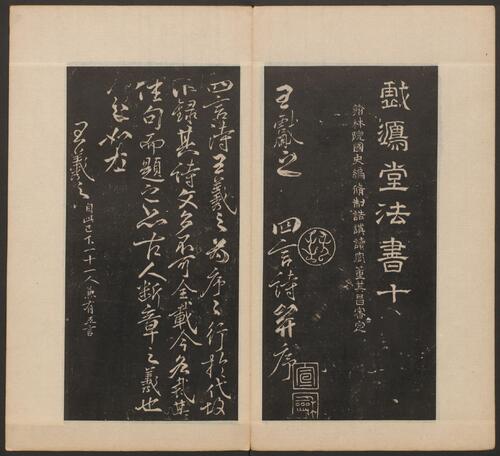 戲鴻堂法書十
翰林院國史編脩制誥講讀官董其昌審定
王
之
四言詩并序
四言詩王羲之為序序行於代故
不録其詩文多不可全載今各裁其
佳句而題之亦古人斷章之義也
王羲之
自此已下十一人兼有五言